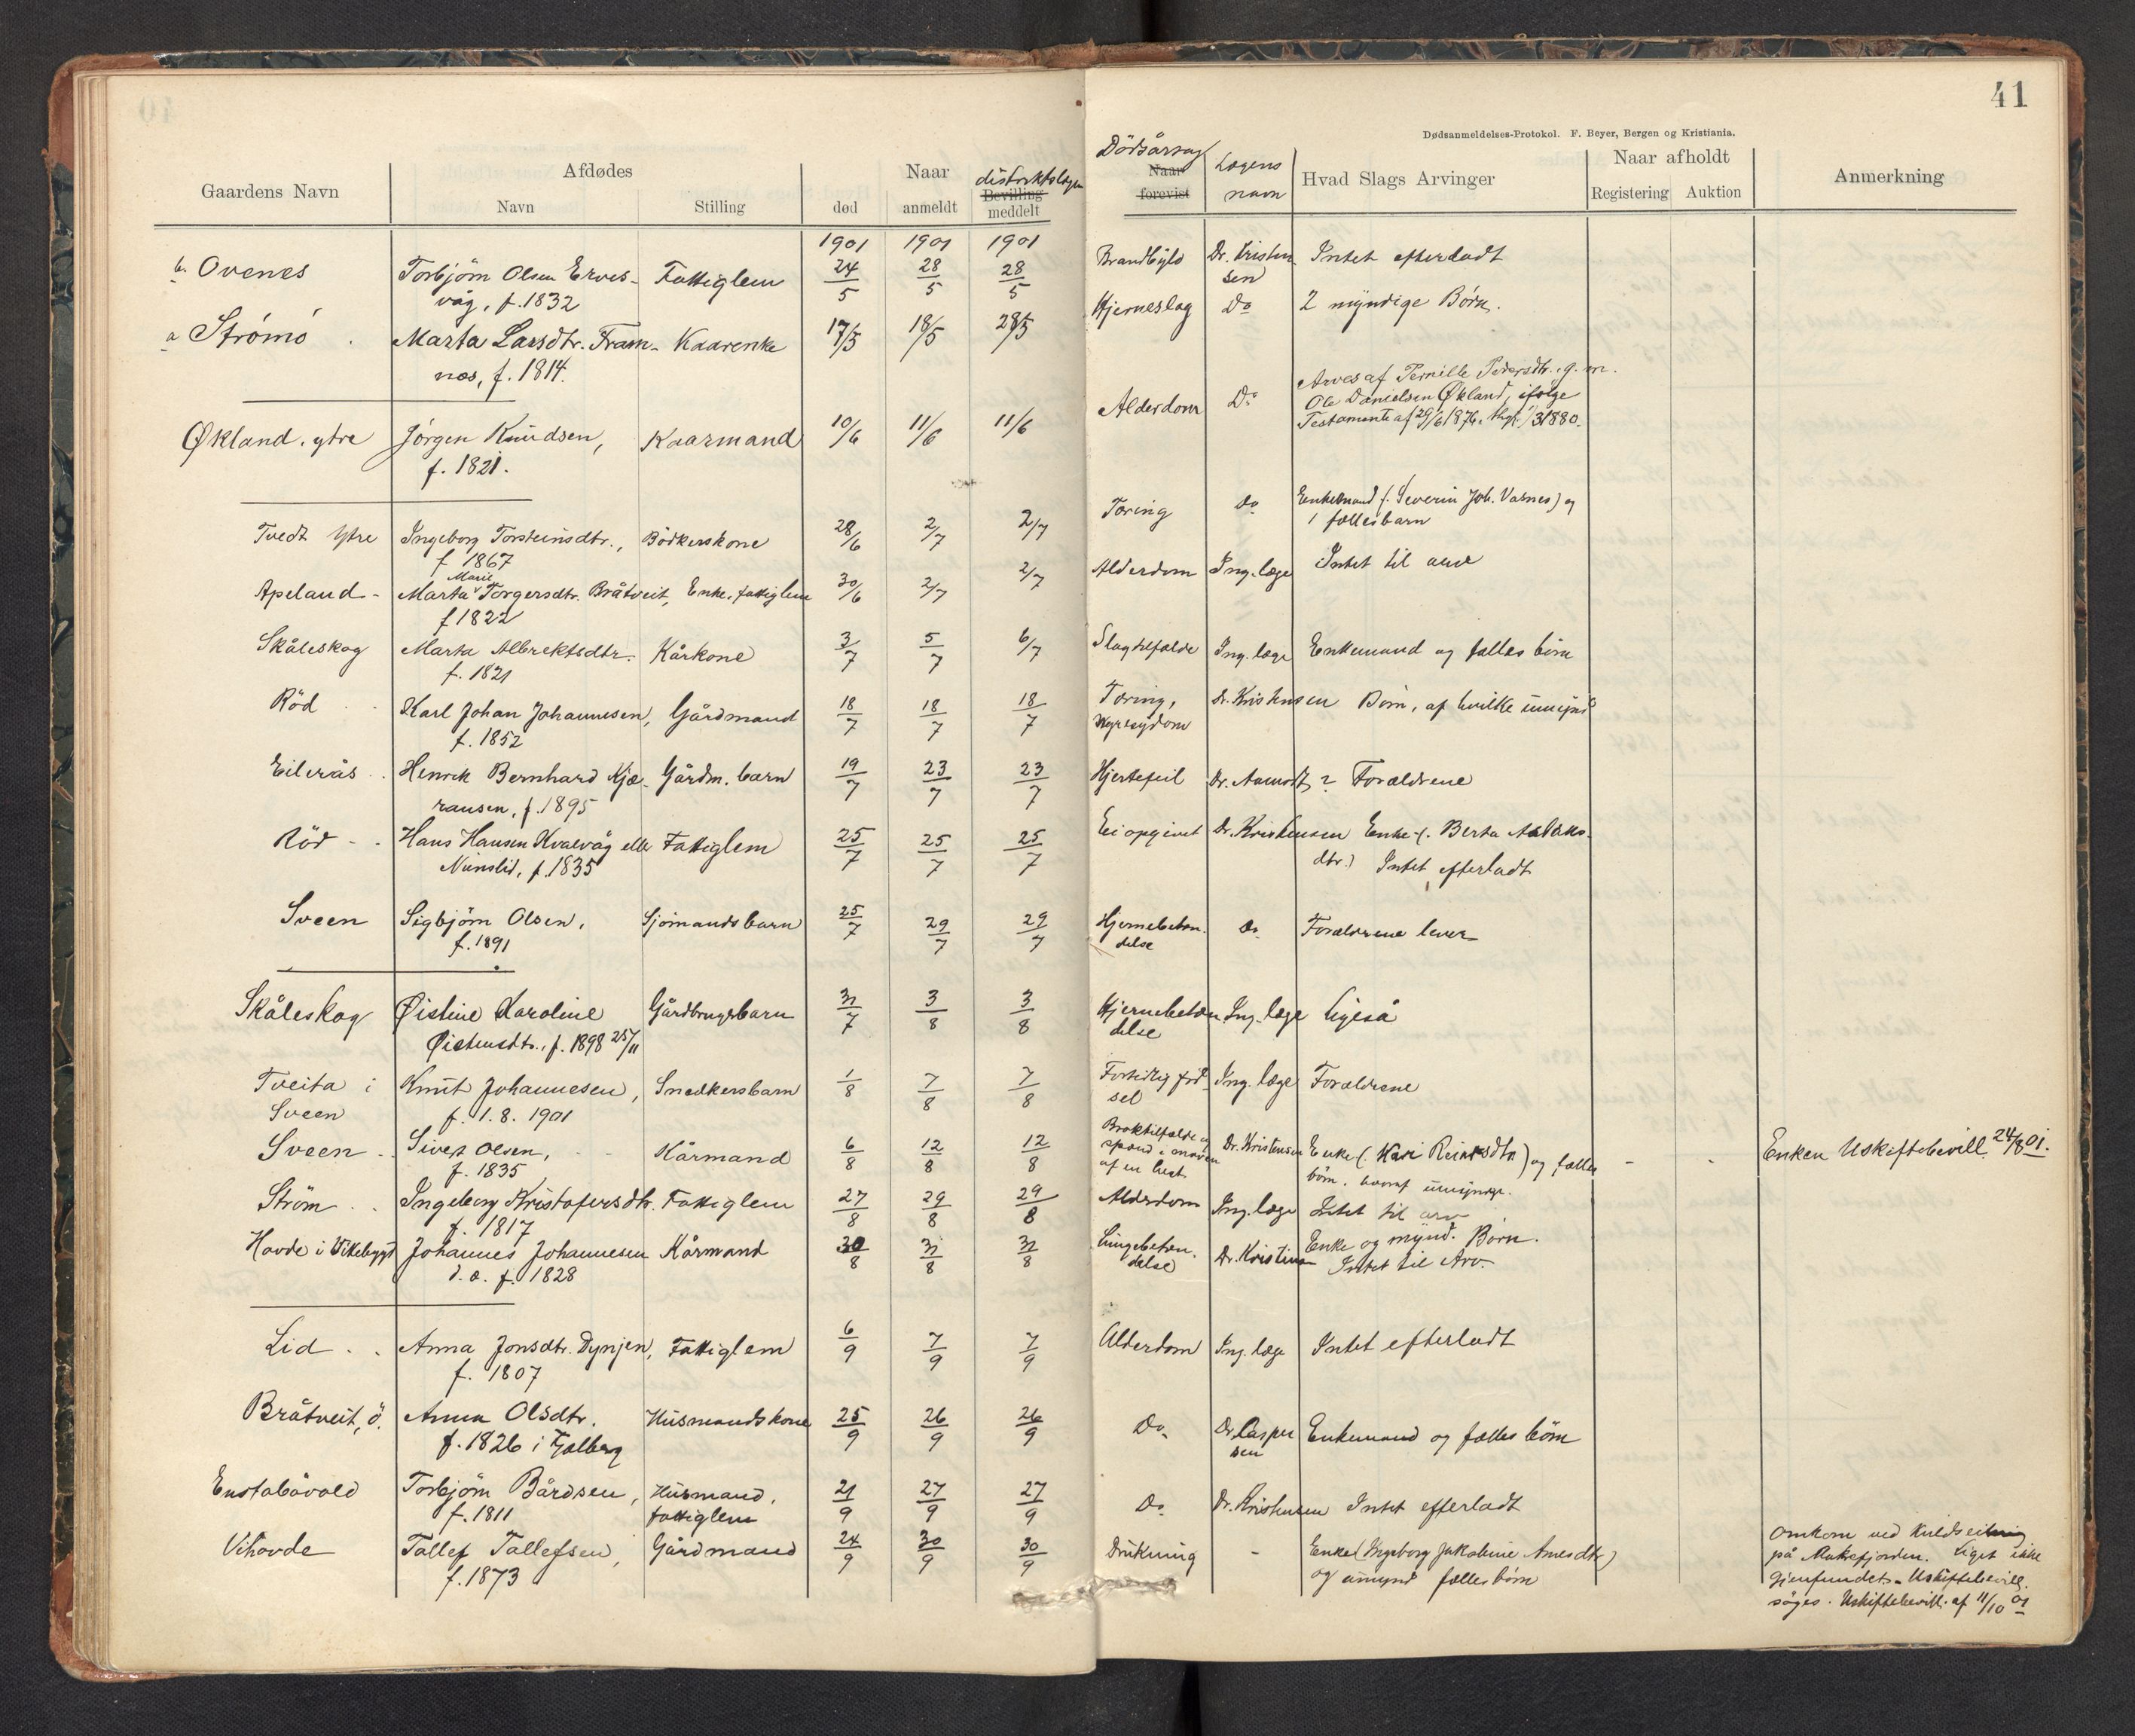 41
Dødsanmeldelses-Protokol. F. Beyer, Bergen og Kristiania.
Gaardens Navn Afdødes Naar Dödsårsag Lægens navn Hvad Slags Arvinger Naar afholdt Anmerkning
Navn Stilling død anmeldt distriktslægen Bevilling meddelt Naar forevist Registering Auktion
1901 1901 1901
b. Ovenes Torbjörn Olsen Erves- Fattiglem 24/5 28/5 28/5 Brandbyld Dr. Kristen- Intet efterladt
våg, f. 1832 sen
a Strømø Marta Larsdtr. Fram- Kaarenke 17/5 18/5 28/5 Hjerneslag Do 2 myndige Børn.
nes, f. 1814.
Arves af Pernille Pedersdtr. g. m.
Økland, ytre Jörgen Knudsen, Kaarmand 10/6 11/6 11/6 Alderdom Do Ole Danielsen Økland, ifølge
f. 1821. Testamente af 29/6 1876, thgl. 1/3 1880.
Tvedt Ytre Ingeborg Torsteinsdtr., Bödkerskone 28/6 2/7 2/7 Tæring Do Enkemand (Severin Joh. Valnes) og
f 1867 1 fællesbarn
Apeland - Marta Marie Torgersdtr. Bråtveit, Enke, fattiglem 30/6 2/7 2/7 Alderdom Ing. læge Intet til arv
f 1822
Skåleskog Marta Albrektsdtr. Kårkone 3/7 5/7 6/7 Slagtilfælde Ing. læge Enkemand og fælles börn
f. 1821
Röd Karl Johan Johannesen, Gårdmand 18/7 18/7 18/7 Tæring, Dr. Kristensen Börn, af hvilke umynd
f. 1852 Nyresygdom
Eilerås Henrik Bernhard Kjæ- Gårdm. barn 19/7 23/7 23/7 Hjertefeil Dr. Aamodt ? Forældrene
ransen, f. 1895
Röd - Hans Hansen Kvalvåg eller Fattiglem 25/7 25/7 25/7 Ei opgivet Dr. Kristensen Enke (Berta Aslaks-
Nünslid, f. 1835 dtr.) Intet efterladt
Sveen Sigbjörn Olsen, Sjömandsbarn 25/7 29/7 29/7 Hjernebetæn- Do Forældrene lever
f. 1891 delse
Skåleskog Øistine Karoline Gårdbrugsbarn 31/7 3/8 3/8 Hjernebetæn- Ing. læge Ligeså
Øistensdtr., f. 1898 25/11 delse
Tveita i Knut Johannesen, Snedkersbarn 1/8 7/8 7/8 Fortidlig föd- Ing. læge Forældrene
Sveen f. 1. 8. 1901 sel
Sveen Sivert Olsen, Kårmand 6/8 12/8 12/8 Broktilfælde og Dr. Kristensen Enke (Kari Reinertsdtr) og fælles - - Enken Uskiftebevill. 24/8 01.
f. 1835 i maven af en hest börn, hvoraf umyndige.
Ström Ingeborg Kristofersdtr. Fattiglem 27/8 29/8 29/8 Alderdom Ing. læge Intet til arv
f. 1817
Hovde i Vikebygd Johannes Johannesen Kårmand 30/8 31/8 31/8 Lungebetæn- Dr. Kristensen Enke og mynd. Börn.
d. æ. f. 1828 delse Intet til Arv.
Lid Anna Jonsdtr. Dynjen, Fattiglem 6/9 7/9 7/9 Alderdom Ing. læge Intet efterladt
f. 1807
Bråtveit, ö. Anna Olsdtr. Husmandskone 25/9 26/9 26/9 Do Dr. Casper Enkemand og fælles börn
f. 1826 i Fjelberg sen
Enstabövold Torbjörn Bårdsen, Husmand, 21/9 27/9 27/9 Do Dr. Kristensen Intet efterladt
f. 1811 fattiglem
Vihovde Tollef Tollefsen, Gårdmand 24/9 30/9 30/9 Drukning - Enke (Ingeborg Jakobine Arnesdtr)
f. 1873 og umynd fælles börn
Omkom ved Kuldseiling
på Matrefjorden. Liget ikke
gjenfundet. - Uskiftebevill.
söges. Uskiftebevill. af 11/10 01